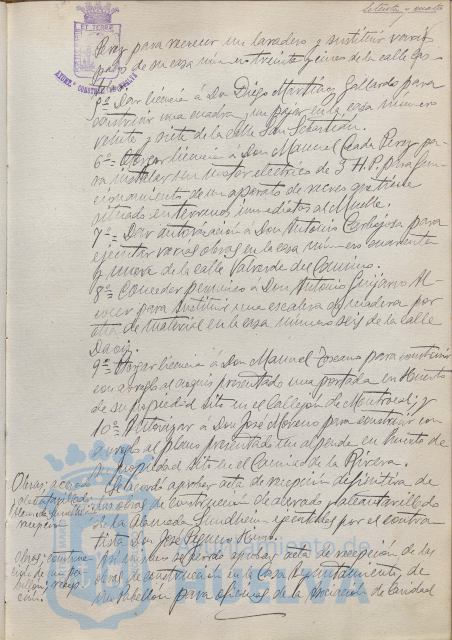 setenta y cuatro
Perez para recrecer un lavadero y sustituir varios
pasos de su casa número treinta y cinco de la calle
5º= Dar licencia á Don Diego Martin Gallardo para
construir una cuadra y un pajar en la casa número
veinte y siete de la calle San Sebastian.
6º= Otorgar licencia á Don Manuel Perez pa-
ra instalar un motor electrico de 3 H.P. para fun-
cionamiento de un aparato de recreo que tiene
situado en terrenos inmediatos al Muelle.
7º= Dar autorización á Don Antonio Carbajosa para
ejecutar varias obras en la casa número cuarenta
y nueve de la calle Valverde del Camino.
8º= Conceder permiso á Don Antonio Guijarro
para sustituir una escalera de madera por
otra de material en la casa número seis de la calle
Daoiz.
9º= Otorgar licencia á Don Manuel Toscano para construir
con arreglo al croquis presentado una portada en Huerto
de su propiedad sito en el Callejon de Montrocal; y
10º= Autorizar á Don José Moreno para construir con
arreglo al plano presentado un alpende en Huerto de
su propiedad sito en el Camino de la Rivera.
Se acordó aprobar acta de recepción definitiva de
las obras de construcción de acerado y alcantarillado
de la Alameda Sundheim ejecutadas por el contra-
tista Don José
aprobar acta de recepción de las
obras de construcción en la Casa Ayuntamiento de
un Pabellon para oficinas de la Asociación de Caridad
Obras, acerado
alcantarillado
Alameda Sundheim
recepción
Obras, construc-
ción de un pa-
bellon, recep-
ción.
Ayuntamiento de
HUELVA